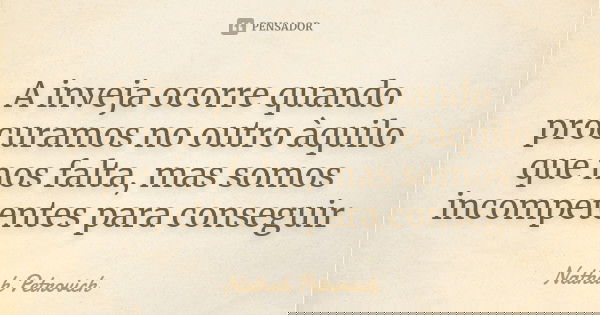 PENSADOR
A inveja ocorre quando
procuramos no outro àquilo
que nos falta, mas somos
incompetentes para conseguir
Nathiah Petrovich